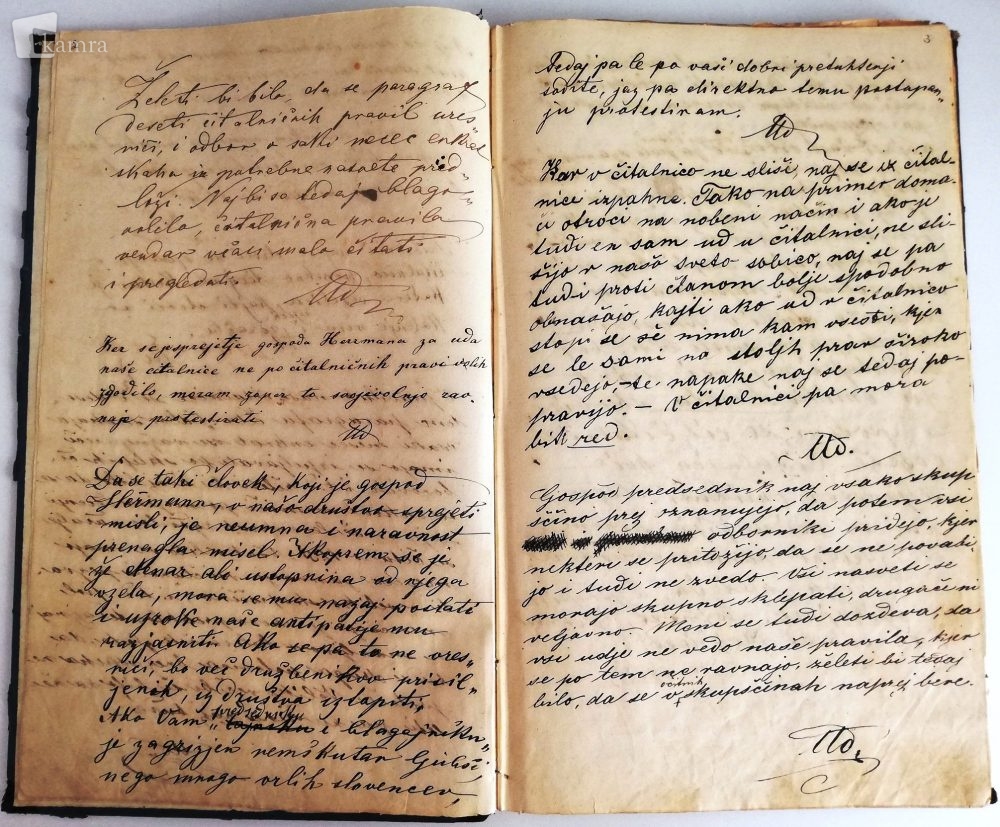 kamra
Želeti bi bilo, da se paragraf
deseti čitalničnih pravil ures„
niči, i odbor v saki mesec enkrat
skaha iz potrebne nasvete pred„
loži. Naj bi se tedaj blago„
volila, čitalnična pravila
vendar včasi malo čitati
i pregledati.
Ud
Ker se je sprejetje gospoda Herrmana za uda
naše čitalnice ne po čitalničnih pravi velih
zgodilo, moram zoper to svojevoljno rav„
nanje protestirati
Ud
Da se taki človek, koji je gospod
Herrmann, v našo družtvo sprejeti
misli, je neumna i naravnost
prenagla misel. Akoprem se je
že denar ali ustopnina od njega
vzela, mora se mu nazaj poslati
i uzroke naše antipatije mu
razjasniti. Ako se pa to ne ures„
niči, bo več družbenikov prisil„
jenih, iz društva izstopiti.
Ako Vam „predsedniku
tajniku i blagajniku„
je zagrizjen nemškutar ljubši
nego mnogo vrlih slovencev,
3
tedaj pa le po vaši dobri pretuhtenji
sodite, jaz pa direktno temu postopan„
ju protestiram.
Ud
Kar v čitalnico ne sliši, naj se iz čital-
nice izpahne. Tako na primer doma-
či otroci na nobeni način i ako je
tudi en sam ud u čitalnici, ne sli-
šijo v našo sveto sobico, naj se pa
tudi proti članom bolje spodobno
obnašajo, kajti ako ud v čitalnico
stopi se sč nima kam vsesti, kjer
se le sami na stoljh prav široko
vsedejo, – te napake naj se tedaj po-
pravijo. – V čitalnici pa mora
biti red.
Ud.
Gospod predsednik naj vsako skup„
ščino prej oznanujejo, da potem vsi
odborniki pridejo, kjer
nekteri se pritožijo, da se ne povabi-
jo i tudi ne zvedo. Vsi nasveti se
morajo skupno sklepati, drugači ni
veljavno. Meni se tudi dozdeva, da
vsi udje ne vedo naše pravila, kjer
se po tem ne ravnajo, želeti bi tedaj
bilo, da se v skupščinah naprej bere.
Ud.